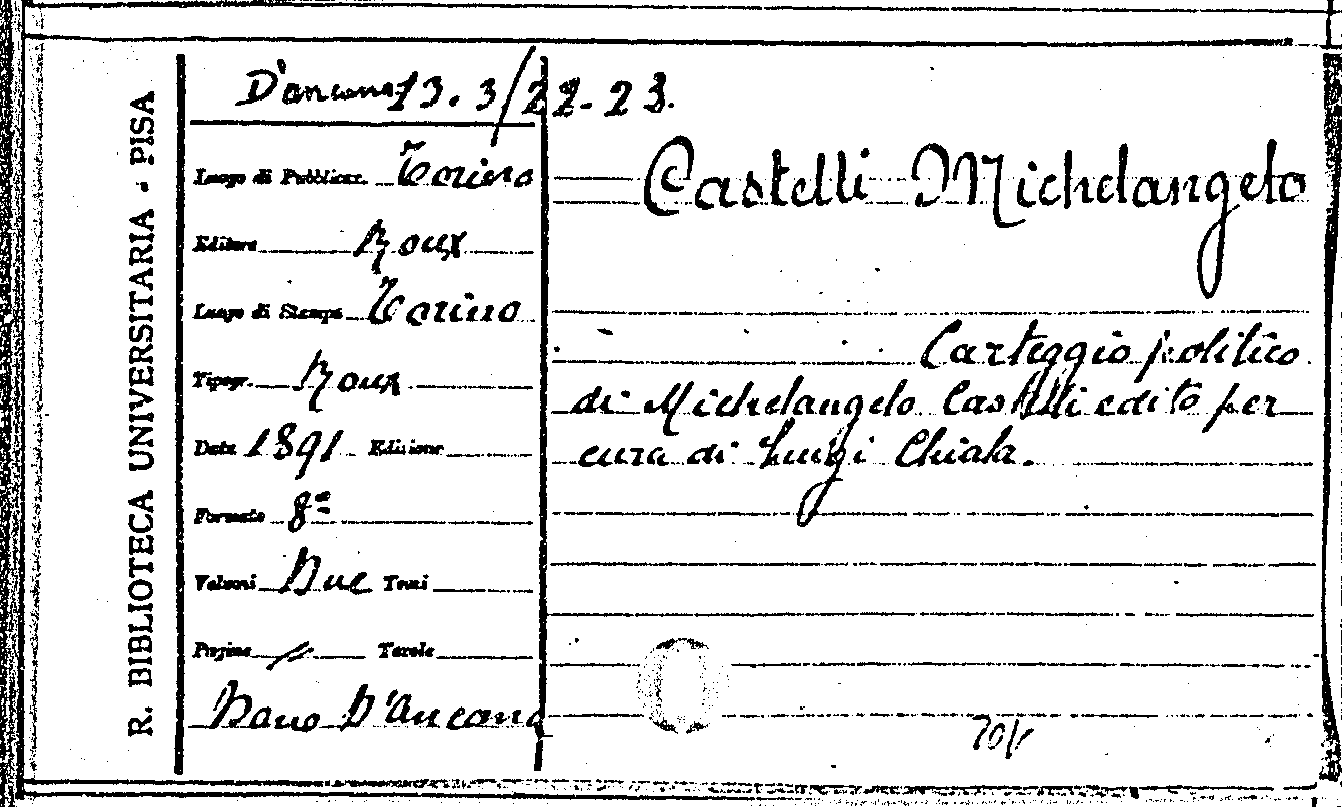 R. BIBLIOTECA UNIVERSITARIA - PISA
D'ancona 13. 3/22-23.
Luogo di Pubblicaz. Torino
Editore Roux
Luogo di Stampa Torino
Tipogr. Roux
Data 1891 Edizione
Formato 8º
Volumi Due Tomi
Pagine // Tavole
Dono D'Ancona
Castelli Michelangelo
Carteggio politico
di Michelangelo Castelli edito per
cura di Luigi Chiala.